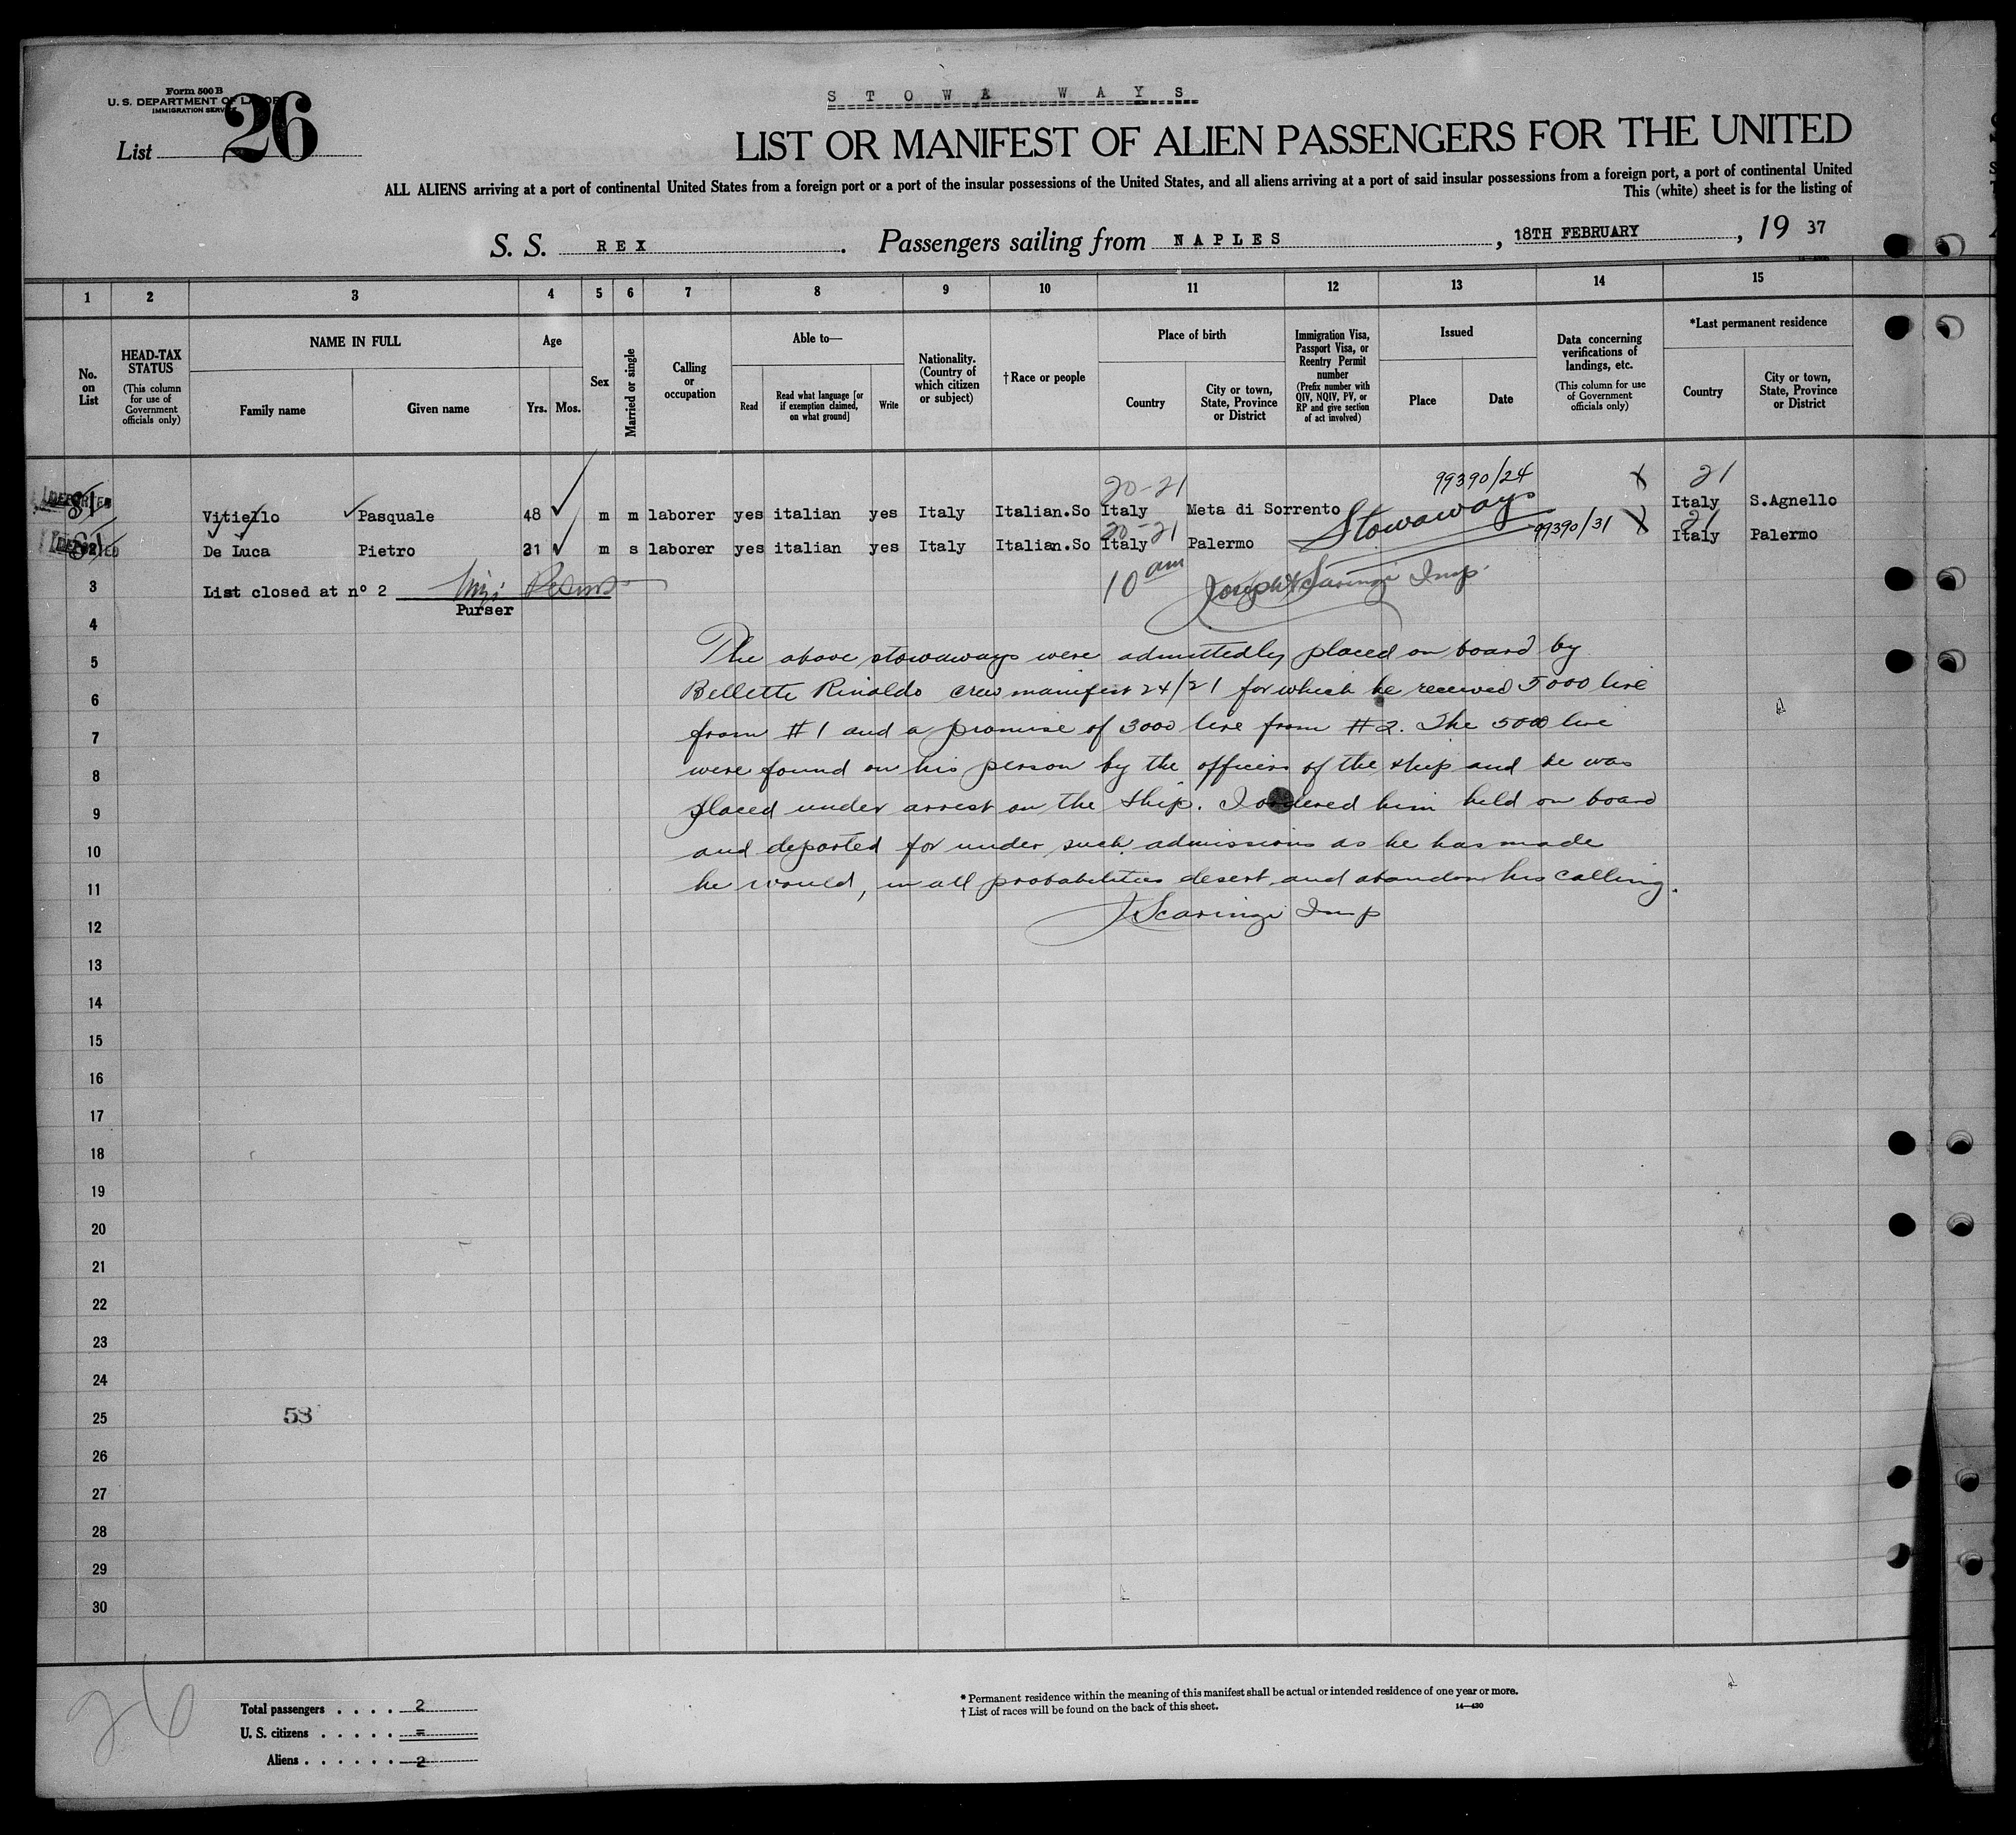 Form 500 B
U. S. DEPARTMENT OF LABOR
IMMIGRATION SERVICE
List 26
S T O W A W A Y S
LIST OR MANIFEST OF ALIEN PASSENGERS FOR THE UNITED
ALL ALIENS arriving at a port of continental United States from a foreign port or a port of the insular possessions of the United States, and all aliens arriving at a port of said insular possessions from a foreign port, a port of continental United
This (white) sheet is for the listing of
S. S. REX. Passengers sailing from NAPLES, 18TH FEBRUARY, 19 37
1 2 3 4 5 6 7 8 9 10 11 12 13 14 15
No. on List
HEAD-TAX STATUS
(This column for use of Government officials only)
NAME IN FULL
Family name
Given name
Age
Yrs. Mos.
Sex
Married or single
Calling or occupation
Able to—
Read
Read what language [or if exemption claimed, on what ground]
Write
Nationality. (Country of which citizen or subject)
†Race or people
Place of birth
Country
City or town, State, Province or District
Immigration Visa, Passport Visa, or Reentry Permit number
(Prefix number with QIV, NQIV, PV, or RP and give section of act involved)
Issued
Place
Date
Data concerning verifications of landings, etc.
(This column for use of Government officials only)
*Last permanent residence
Country
City or town, State, Province or District
20-21 99390/24 X 21
DEPORTED Vitiello Pasquale 48 m m laborer yes italian yes Italy Italian.So Italy Meta di Sorrento Stowaways Italy S.Agnello
20-21 99390/31 X 21
DEPORTED De Luca Pietro 21 m s laborer yes italian yes Italy Italian.So Italy Palermo Italy Palermo
3 List closed at nº 2
Purser
10 am Joseph Scaringi Insp.
4
5 The above stowaways were admittedly placed on board by
6 Bellette Rinaldo crew manifest 24/21 for which he received 5000 lire
7 from #1 and a promise of 3000 lire from #2. The 5000 lire
8 were found on his person by the officers of the ship and he was
9 placed under arrest on the ship. I ordered him held on board
10 and deported for under such admissions as he has made
11 he would, in all probabilities desert and abandon his calling.
12 J Scaringi Insp
13
14
15
16
17
18
19
20
21
22
23
24
25 53
26
27
28
29
30
26
Total passengers . . . . 2
U. S. citizens . . . . . =
Aliens . . . . . . 2
* Permanent residence within the meaning of this manifest shall be actual or intended residence of one year or more.
† List of races will be found on the back of this sheet.
14—430